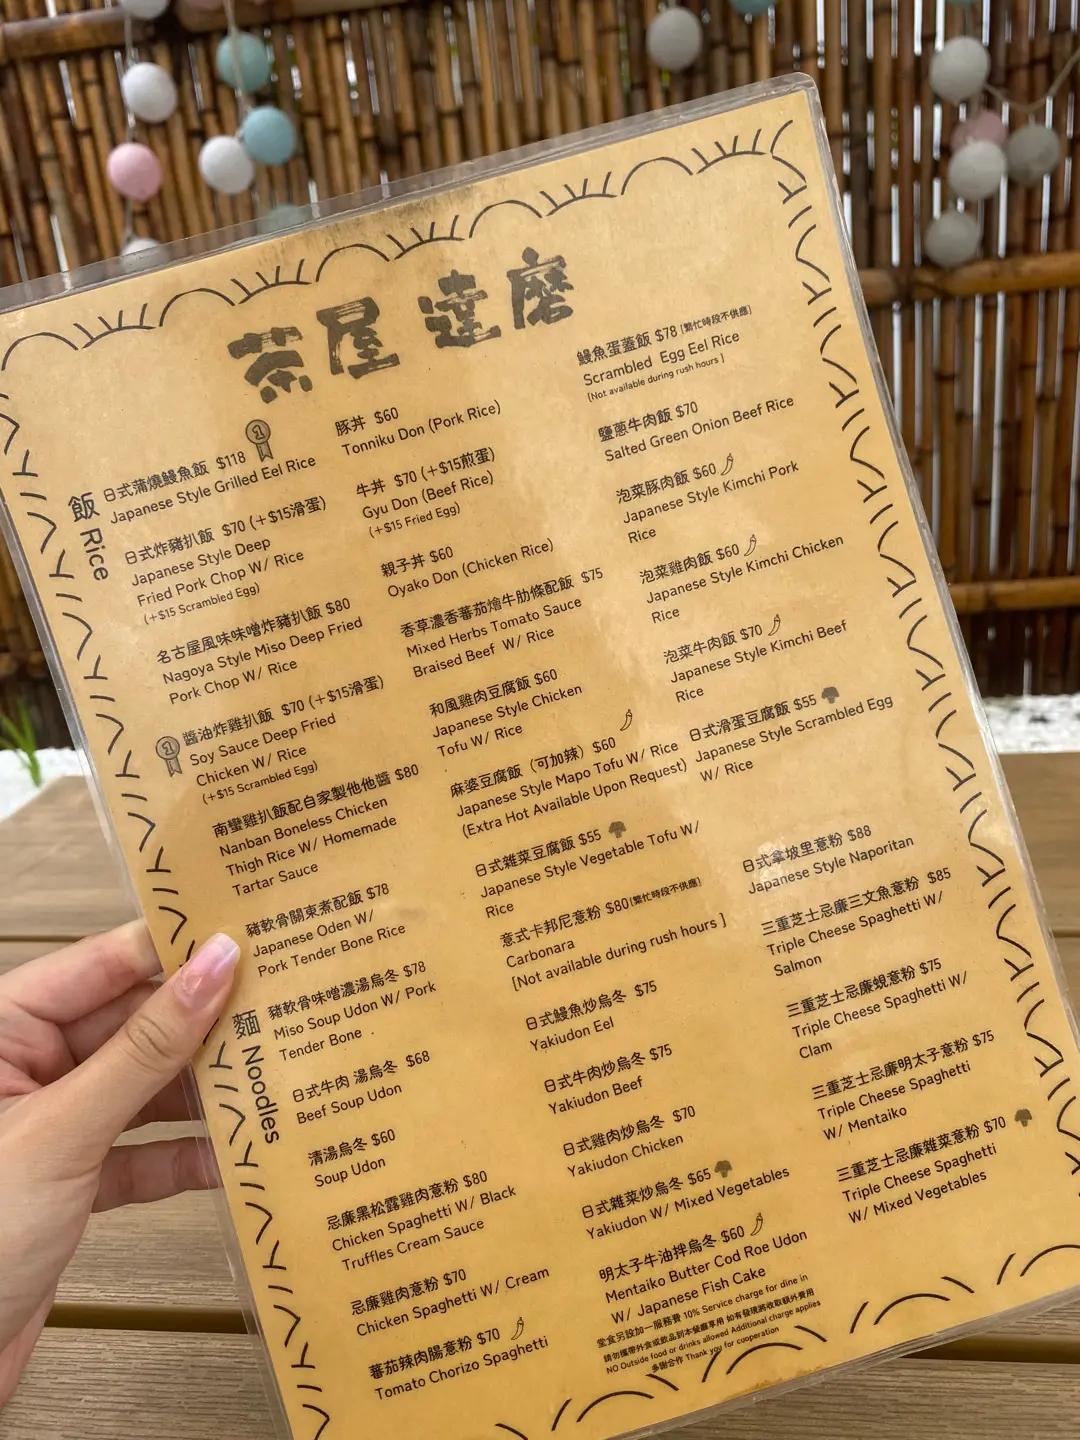 茶屋達磨
飯 Rice
日式蒲燒鰻魚飯 $118
1
Japanese Style Grilled Eel Rice
日式炸豬扒飯 $70 (+$15滑蛋)
Japanese Style Deep
Fried Pork Chop W/ Rice
(+$15 Scrambled Egg)
名古屋風味味噌炸豬扒飯 $80
Nagoya Style Miso Deep Fried
Pork Chop W/ Rice
1
醬油炸雞扒飯 $70 (+$15滑蛋)
Soy Sauce Deep Fried
Chicken W/ Rice
(+$15 Scrambled Egg)
南蠻雞扒飯配自家製他他醬 $80
Nanban Boneless Chicken
Thigh Rice W/ Homemade
Tartar Sauce
豬軟骨關東煮配飯 $78
Japanese Oden W/
Pork Tender Bone Rice
麵 Noodles
豬軟骨味噌濃湯烏冬 $78
Miso Soup Udon W/ Pork
Tender Bone
日式牛肉 湯烏冬 $68
Beef Soup Udon
清湯烏冬 $60
Soup Udon
忌廉黑松露雞肉意粉 $80
Chicken Spaghetti W/ Black
Truffles Cream Sauce
忌廉雞肉意粉 $70
Chicken Spaghetti W/ Cream
蕃茄辣肉腸意粉 $70
Tomato Chorizo Spaghetti
豚丼 $60
Tonniku Don (Pork Rice)
牛丼 $70 (+$15煎蛋)
Gyu Don (Beef Rice)
(+$15 Fried Egg)
親子丼 $60
Oyako Don (Chicken Rice)
香草濃香蕃茄燴牛肋條配飯 $75
Mixed Herbs Tomato Sauce
Braised Beef W/ Rice
和風雞肉豆腐飯 $60
Japanese Style Chicken
Tofu W/ Rice
麻婆豆腐飯（可加辣）$60
Japanese Style Mapo Tofu W/ Rice
(Extra Hot Available Upon Request)
日式雜菜豆腐飯 $55
Japanese Style Vegetable Tofu W/
Rice
意式卡邦尼意粉 $80[繁忙時段不供應]
Carbonara
[Not available during rush hours ]
日式鰻魚炒烏冬 $75
Yakiudon Eel
日式牛肉炒烏冬 $75
Yakiudon Beef
日式雞肉炒烏冬 $70
Yakiudon Chicken
日式雜菜炒烏冬 $65
Yakiudon W/ Mixed Vegetables
明太子牛油拌烏冬 $60
Mentaiko Butter Cod Roe Udon
W/ Japanese Fish Cake
鰻魚蛋蓋飯 $78 [繁忙時段不供應]
Scrambled Egg Eel Rice
[Not available during rush hours ]
鹽蔥牛肉飯 $70
Salted Green Onion Beef Rice
泡菜豚肉飯 $60
Japanese Style Kimchi Pork
Rice
泡菜雞肉飯 $60
Japanese Style Kimchi Chicken
Rice
泡菜牛肉飯 $70
Japanese Style Kimchi Beef
Rice
日式滑蛋豆腐飯 $55
Japanese Style Scrambled Egg
W/ Rice
日式拿坡里意粉 $88
Japanese Style Naporitan
三重芝士忌廉三文魚意粉 $85
Triple Cheese Spaghetti W/
Salmon
三重芝士忌廉蜆意粉 $75
Triple Cheese Spaghetti W/
Clam
三重芝士忌廉明太子意粉 $75
Triple Cheese Spaghetti
W/ Mentaiko
三重芝士忌廉雜菜意粉 $70
Triple Cheese Spaghetti
W/ Mixed Vegetables
堂食另設加一服務費 10% Service charge for dine in
請勿攜帶外食或飲品到本餐廳享用 如有發現將收取額外費用
NO Outside food or drinks allowed Additional charge applies
多謝合作 Thank you for cooperation